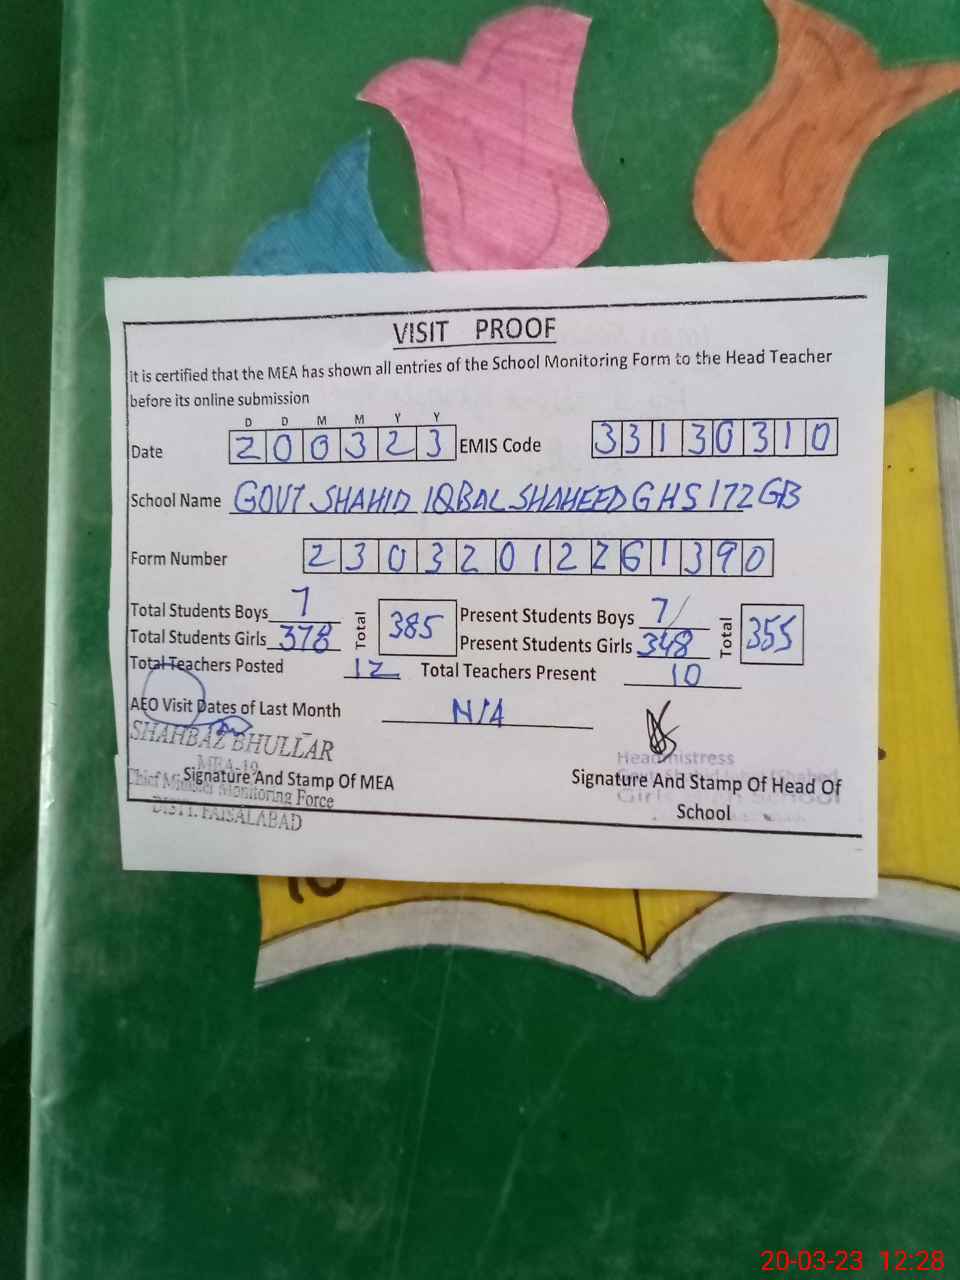 VISIT PROOF
It is certified that the MEA has shown all entries of the School Monitoring Form to the Head Teacher
before its online submission
D D M M Y Y
Date 200323 EMIS Code 33130310
School Name GOVT SHAHID IQBAL SHAHEED GHS 172 GB
Form Number 23032012261390
Total Students Boys 7 Total 385 Present Students Boys 7/ Total 355
Total Students Girls 378 Present Students Girls 348
Total Teachers Posted 12 Total Teachers Present 10
AEO Visit Dates of Last Month N/A
SHAHBAZ BHULLAR
MEA-19
Chief Minister Monitoring Force
DISTT. FAISALABAD
Signature And Stamp Of MEA
Headmistress
Girls School
Signature And Stamp Of Head Of
School
10
20-03-23 12:28